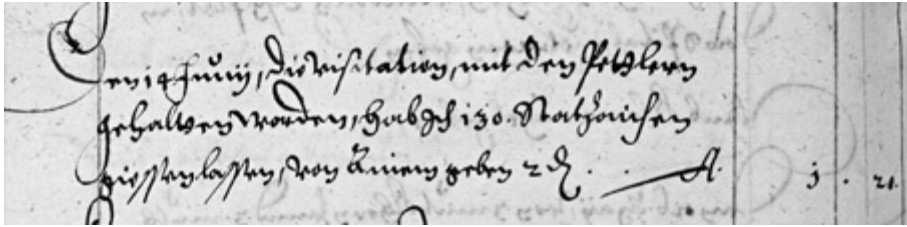 Den 14 Junij, die visitation, mit den Pettlern
gehalten worden, hab Ich 130. Statzaichen
giessen lassen, von Ainem geben 2 d. . fl. j . 21